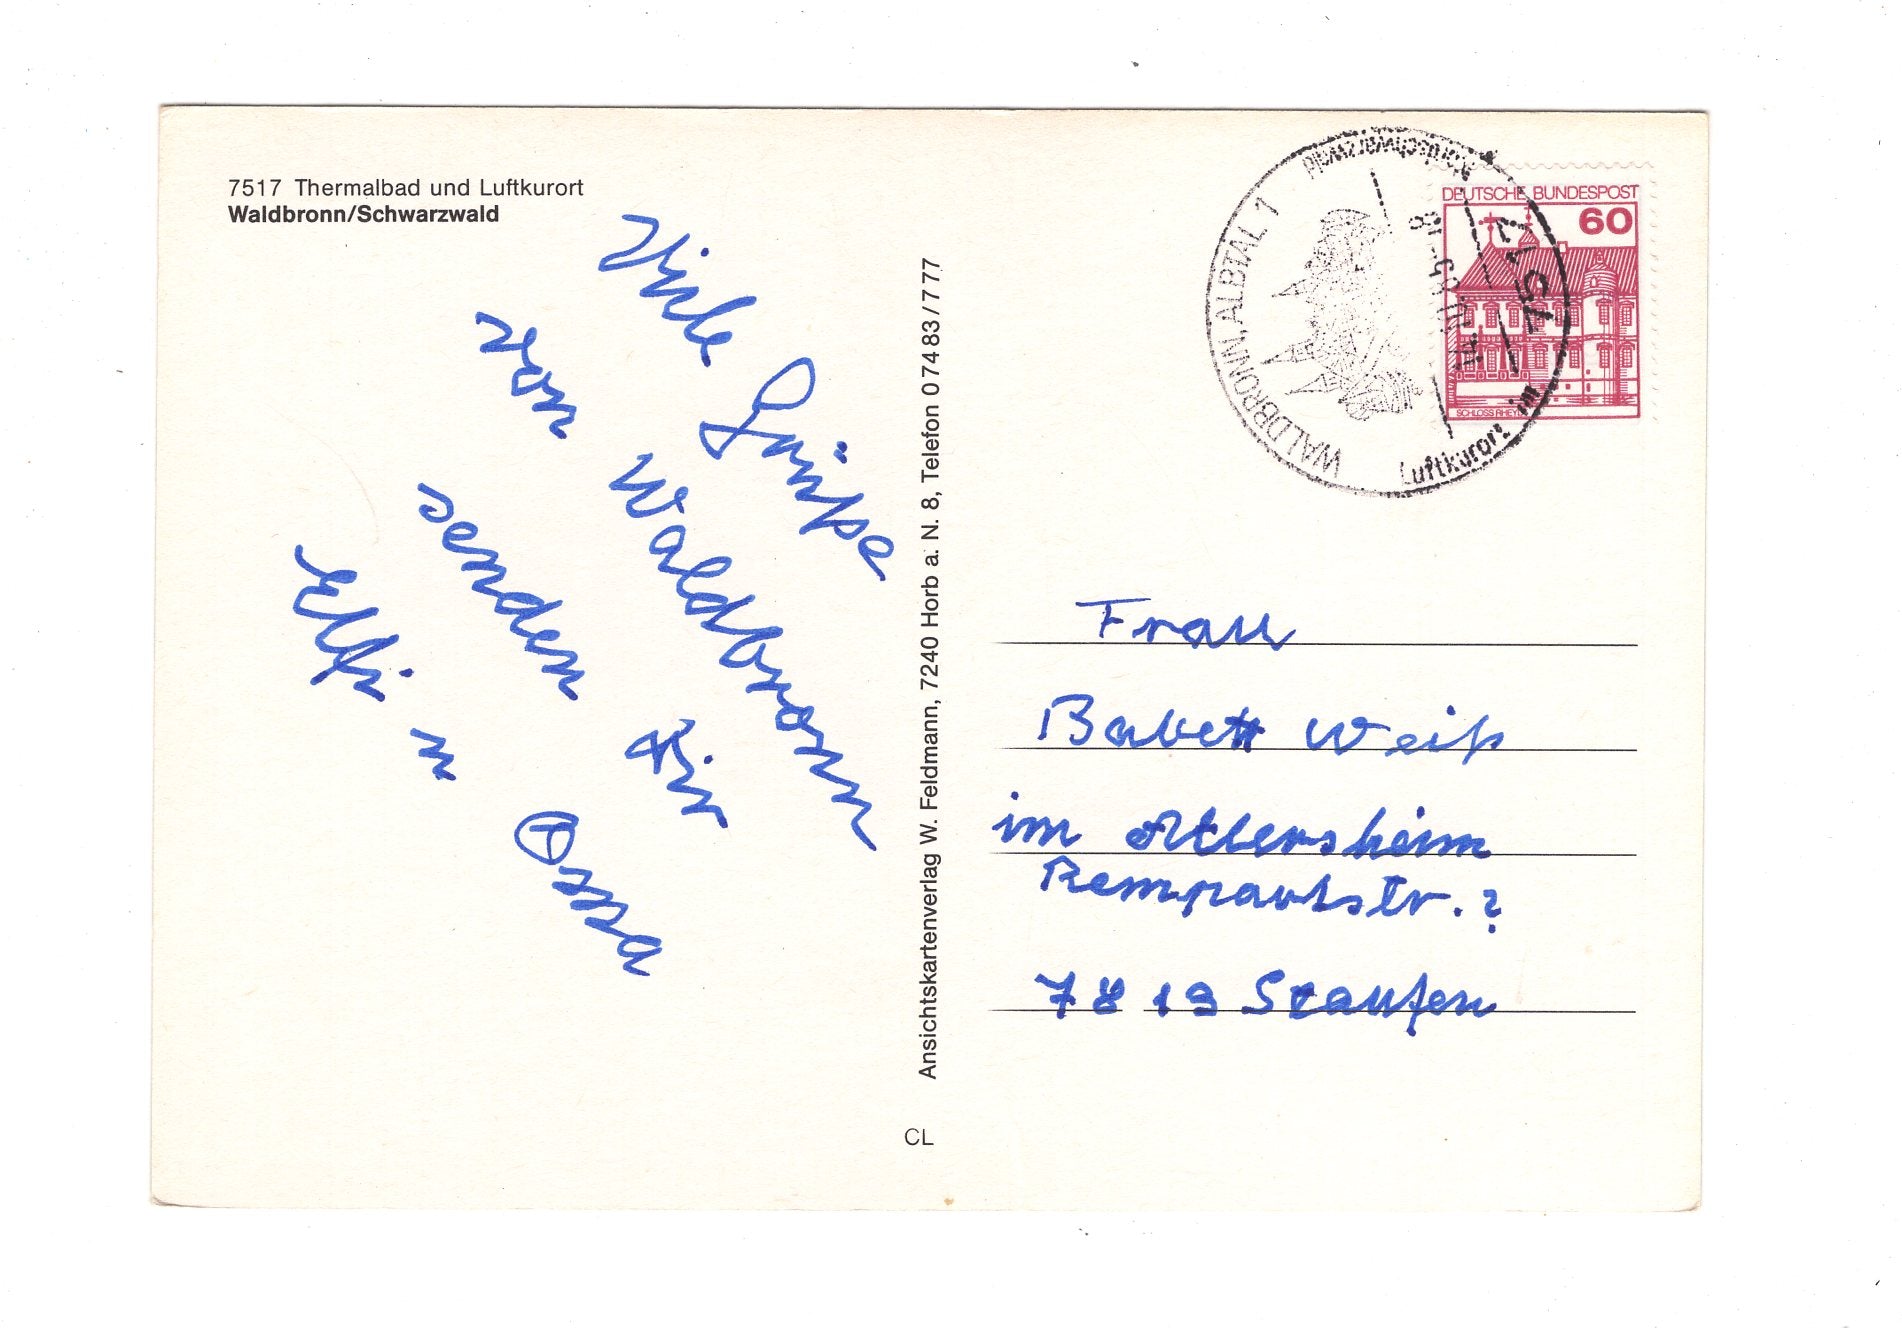 7517 Thermalbad und Luftkurort
Waldbronn/Schwarzwald
Viele Grüße
von Waldbronn
senden Dir
Elfi u Ossa
Ansichtskartenverlag W. Feldmann, 7240 Horb a. N. 8, Telefon 07483/777
CL
WALDBRONN, ALBTAL 1
Luftkurort im Nordschwarzwald
7517
DEUTSCHE BUNDESPOST
60
SCHLOSS RHEYDT
Frau
Babett Weiß
im Altersheim
Rempartstr. ?
7813 Staufen